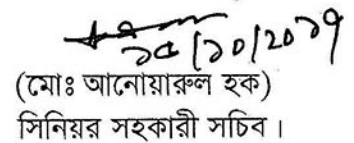 ১৫/১০/20১৭
(মোঃ আনোয়ারুল হক)
সিনিয়র সহকারী সচিব।